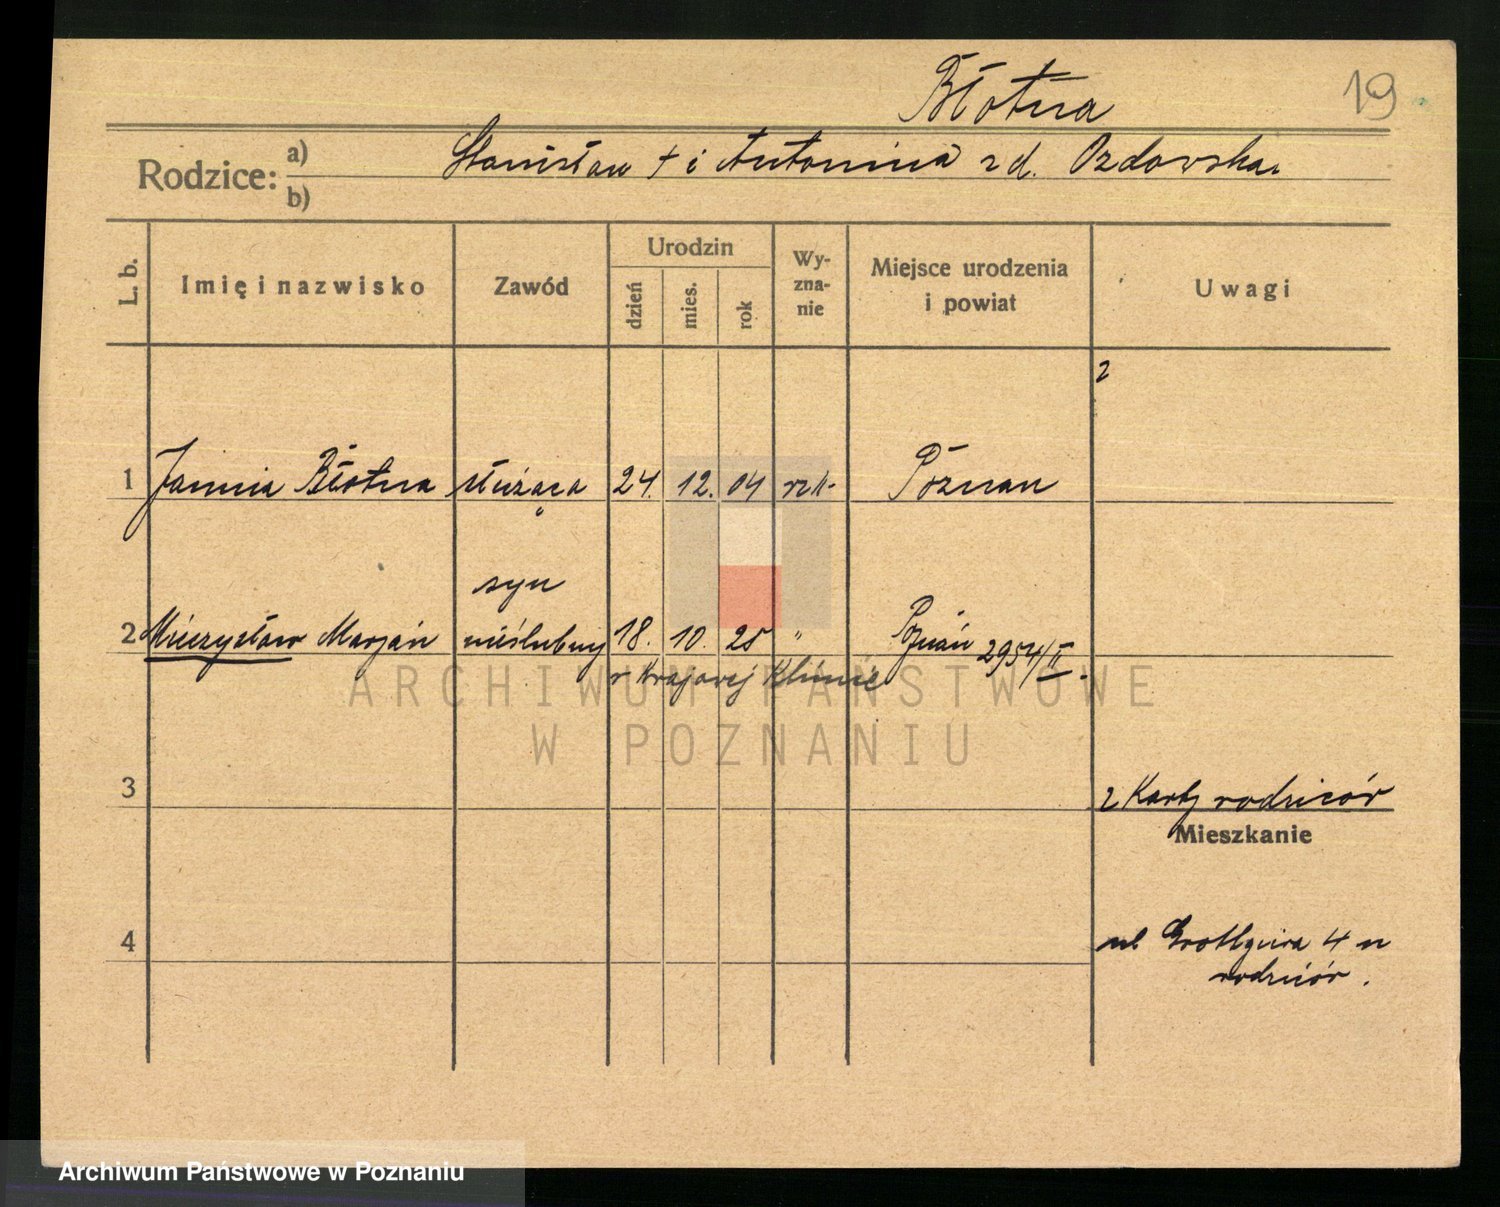 Błotna
19
Rodzice: a) Stanisław + i Antonina z d. Ozdowska
b)
L. b. Imię i nazwisko Zawód Urodzin dzień mies. rok Wy-zna-nie Miejsce urodzenia i powiat Uwagi
z
1 Janina Błotna służąca 24. 12. 04 rzk. Poznań
syn
2 Mieczysław Marjan nieślubny 18. 10. 25 " Poznań 2954/II.
w Krajowej Klinice
ARCHIWUM PAŃSTWOWE
W POZNANIU
3
z Karty rodziców
Mieszkanie
4 ul Grottgera 4 u
rodziców.
Archiwum Państwowe w Poznaniu